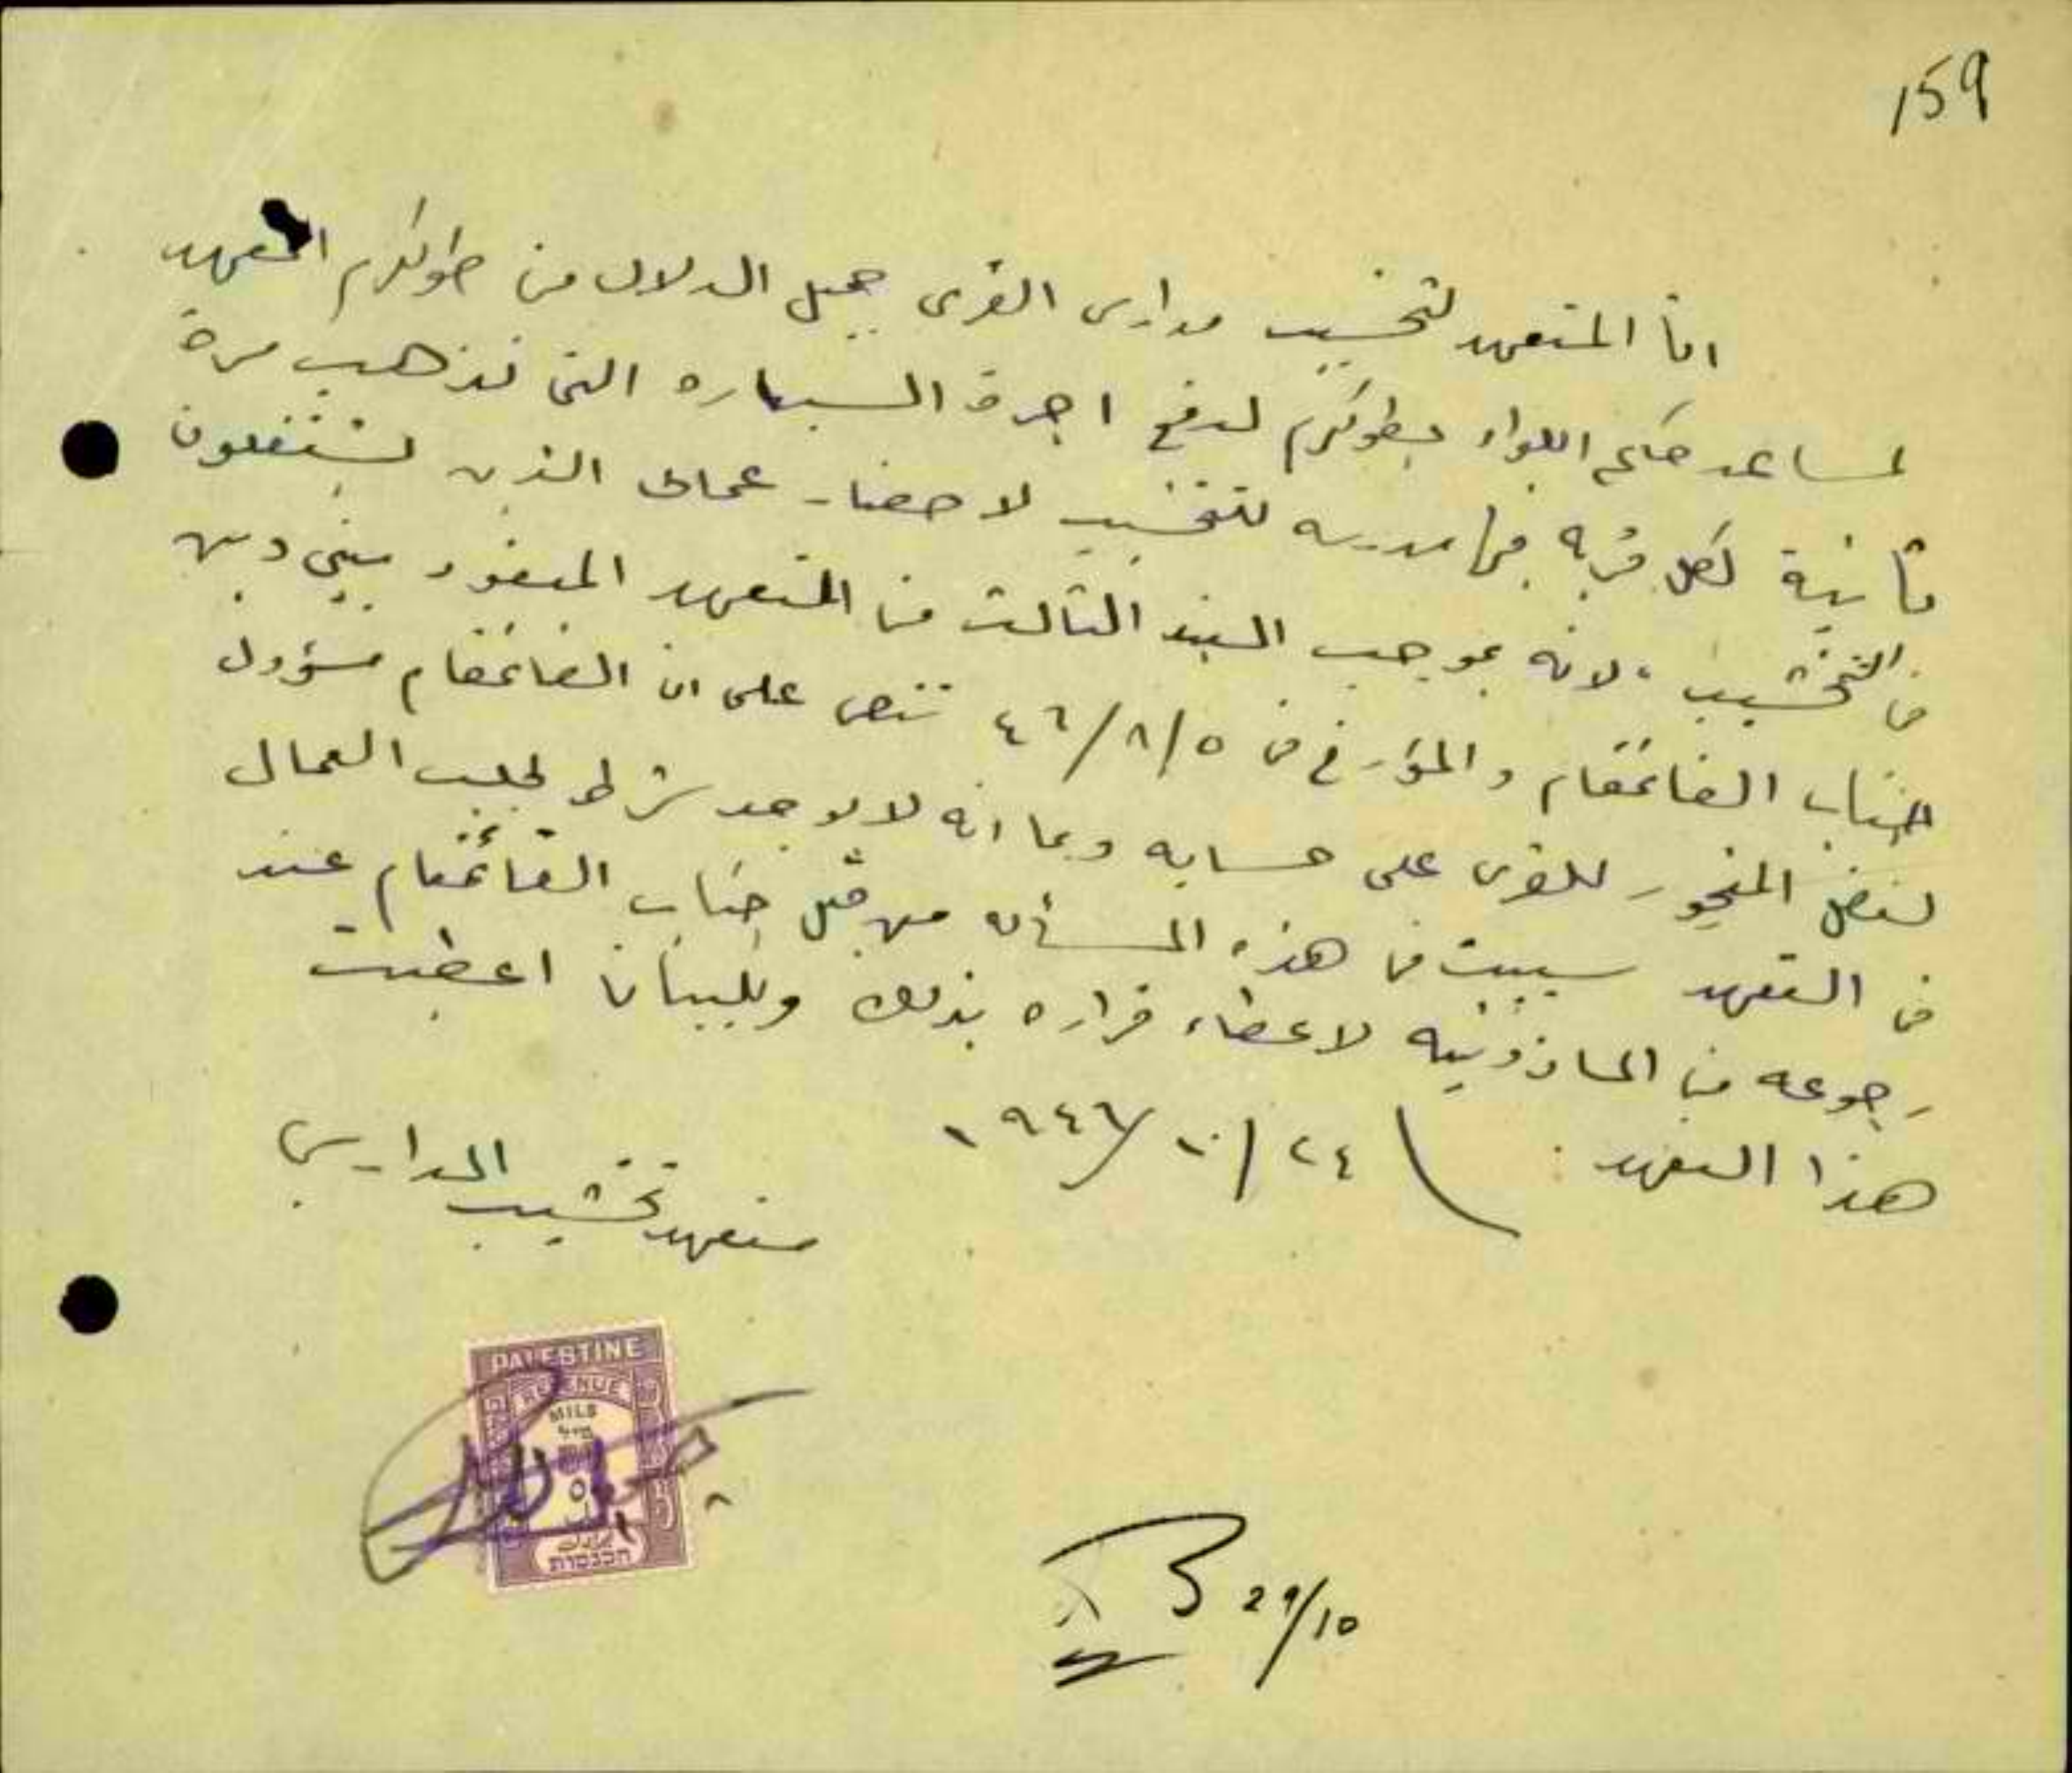 159
انا المتعهد لتخشيب مدارس القرى جميل الدلال من طولكرم اتعهد
لمساعد حاكم اللواء بطولكرم لدفع اجرة السياره التي تذهب مرة
ثانية لكل قريه فيها مدرسه للتخشيب لاحضار عمالى الذين يشتغلون
في التخشيب، لانه بموجب البند الثالث من التعهد المعقود بيني وبين
جناب القائمقام والمؤرخ في ٤٦/٨/٥ تنص على ان القائمقام مسؤول
لنقل المنجور للقرى على حسابه وبما انه لا يوجد شرط لجلب العمال
في التعهد سيبت في هذه المسأله من قبل جناب القائمقام عند
رجوعه من المأذونيه لاعطاء قراره بذلك وللبيان اعطيت
هذا التعهد: ١٩٤٦/١٠/٢٤
متعهد تخشيب المدارس
PALESTINE
REVENUE
MILS
מיל
הכנסות
29/10